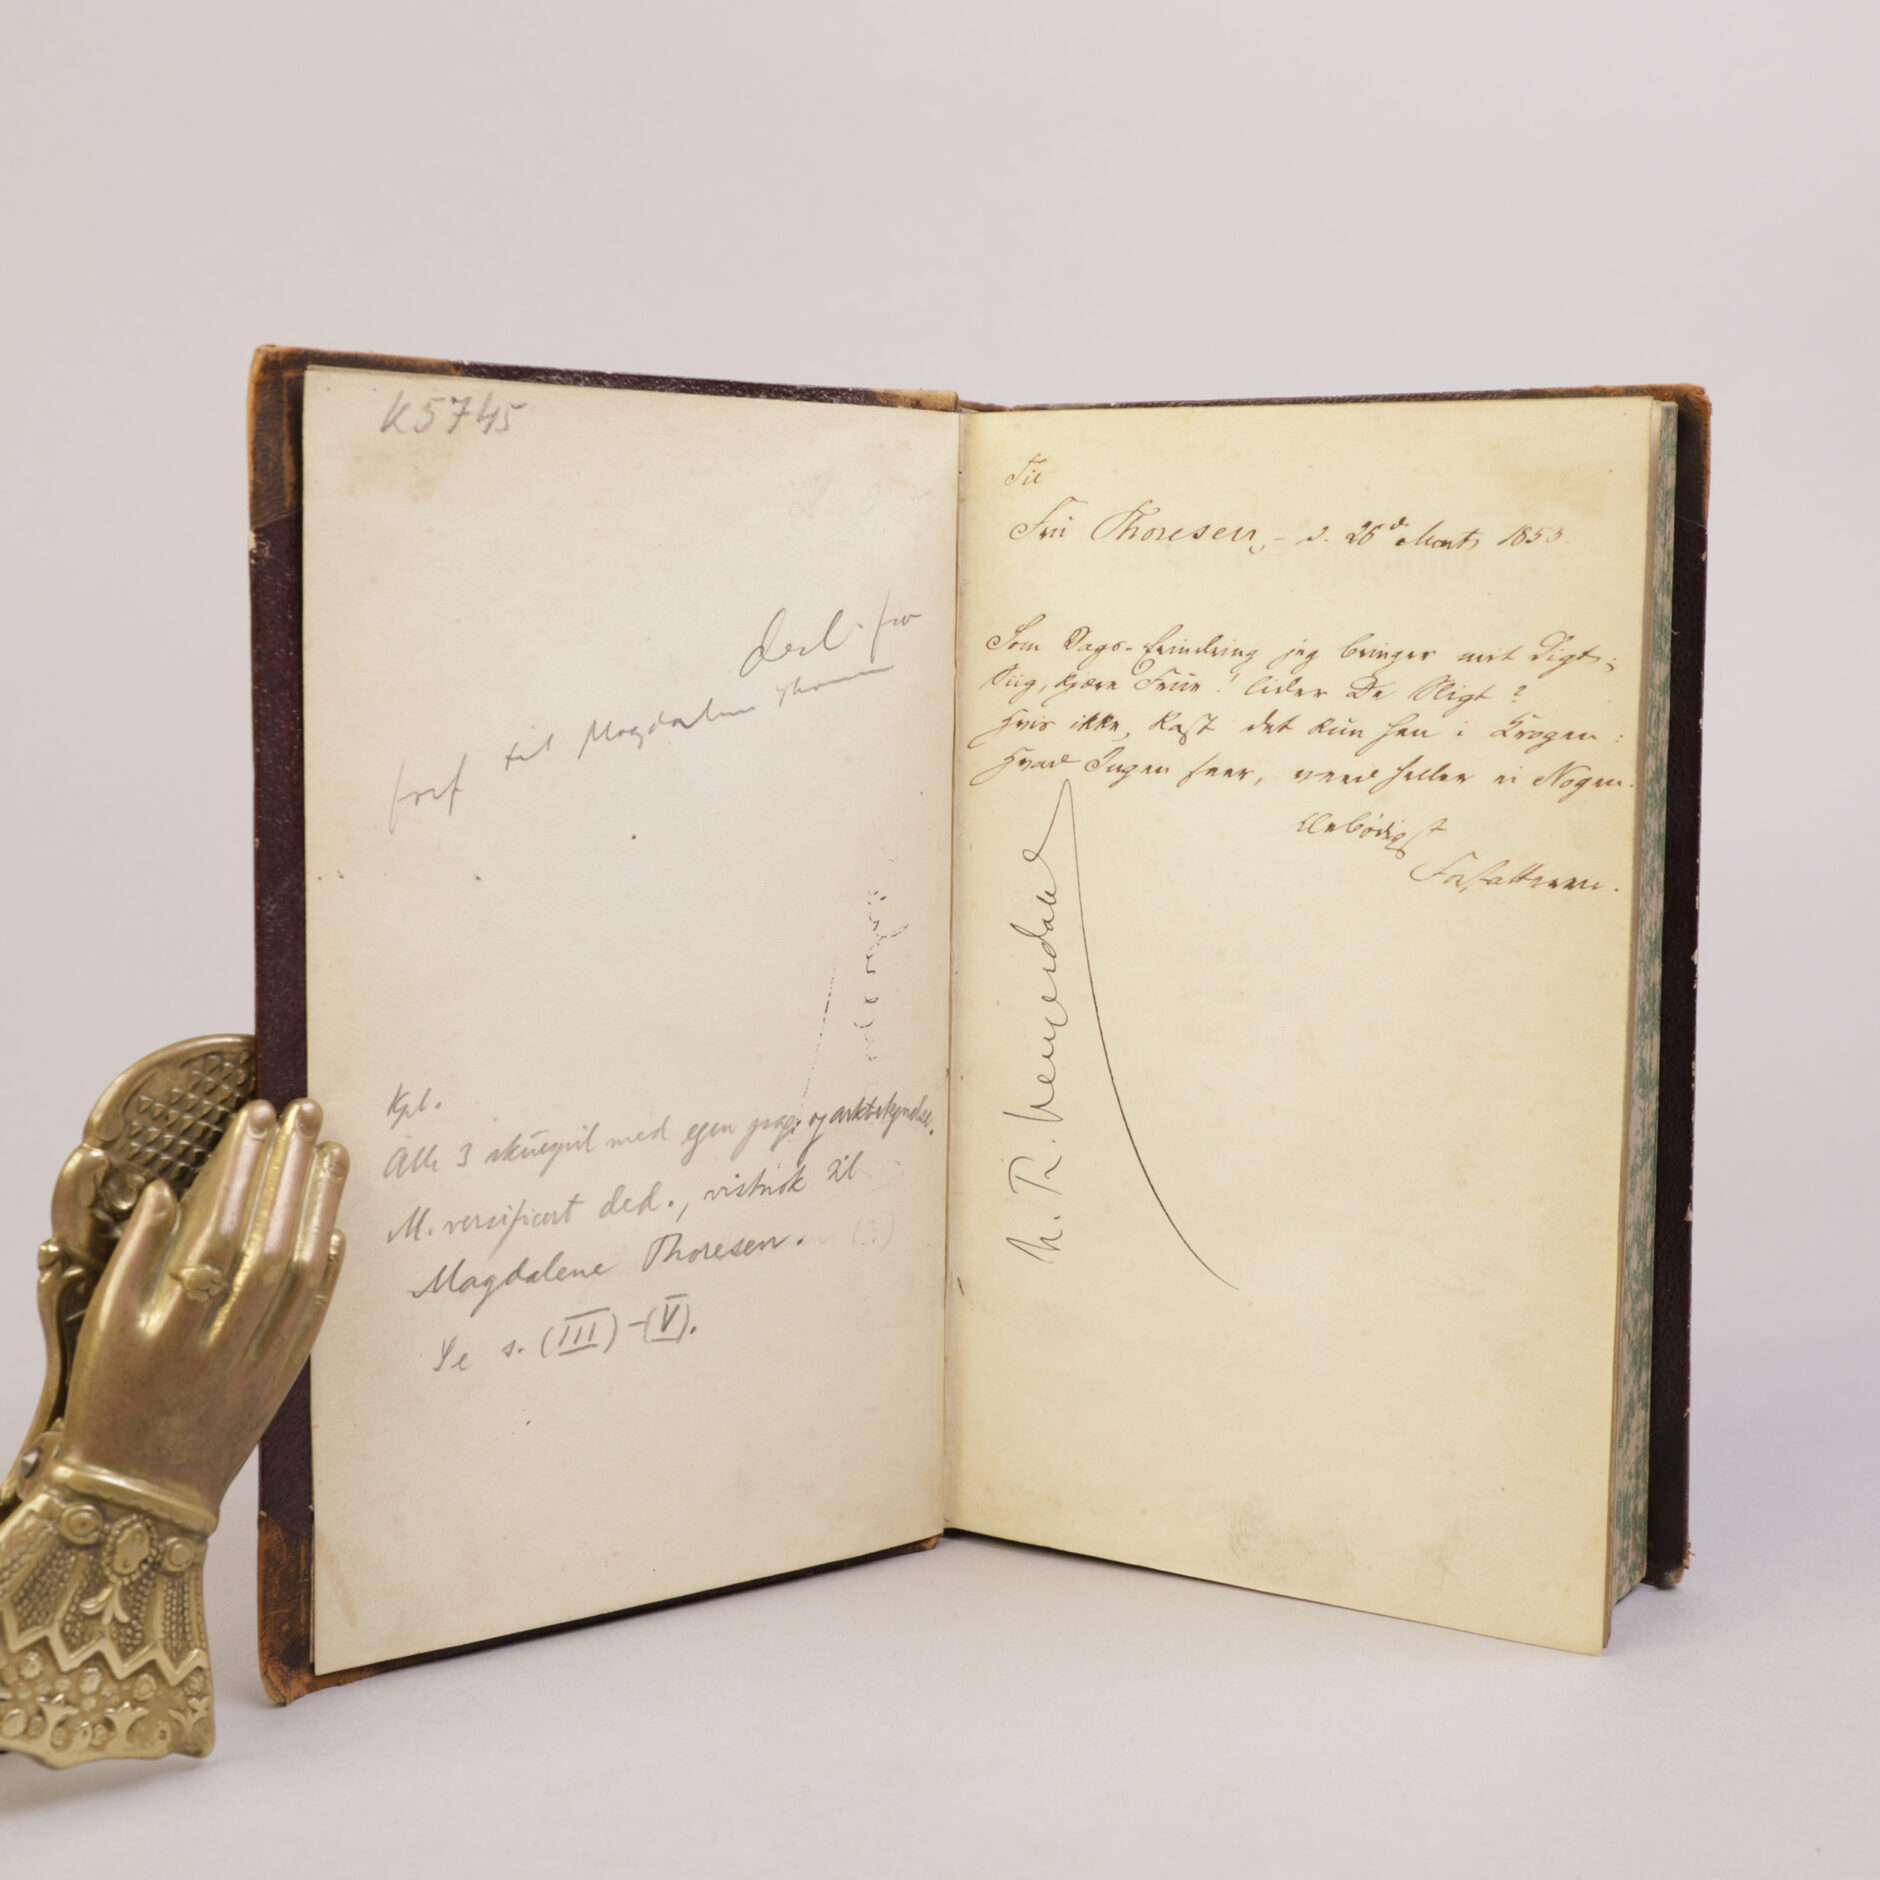 K5745
ded. fra
forf til Magdalene Thoresen
Kpl.
Alle 3 skuespil med egen pag. og arkbetegnelse.
M. versificert ded., vistnok til
Magdalene Thoresen.
Se s. (III)-(V).
Til
Frü Thoresen, - d. 26d. Marts 1853.
Som Dags-Erindring jeg bringer mit Digt;
Siig, kjære Frue! lider De Sligt?
Hvis ikke, kast det kün hen i Krogen:
Hvad Ingen seer, veed heller ei Nogen.
Ærbødigst
Forfatteren.